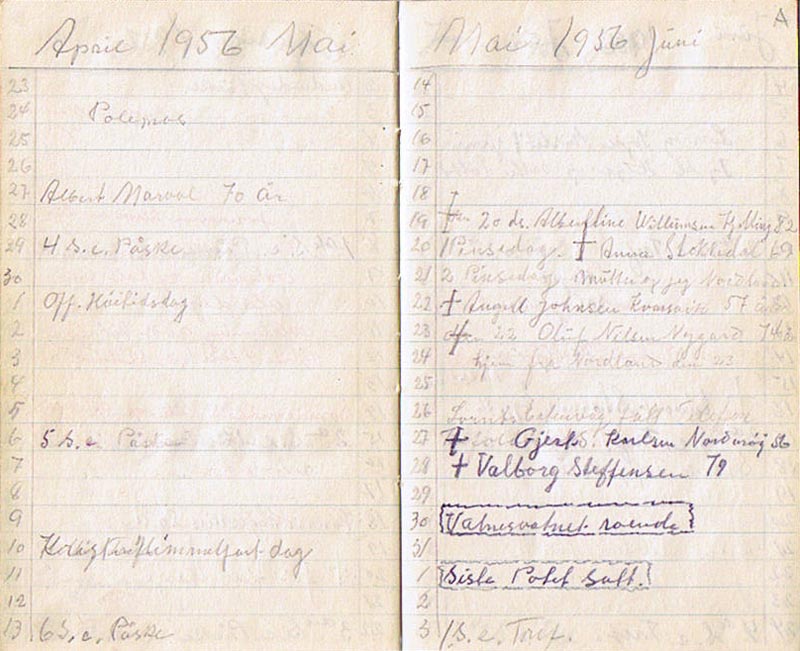 April 1956 Mai
23
24
25
26
27 Albert Marvol 70 år
28
29 4 S. e. Påske
30
1 Off. Höitidsdag
2
3
4
5
6 5 S. e. Påske
7
8
9
10 Kristi Himmelfart dag
11
12
13 6 S. e. Påske
A
Mai 1956 Juni
14
15
16
17
18
19 den 20 ds. Albertine Williamsen 82
20 Pinsedag. † Anna Stokkedal 69
21 2 Pinsedag Mutter og jeg
22 † August Johnsen Kvarsvik 57 år
23 den 22 Oluf Nilsen Nygard 74
24 hjem fra Nordland den 23
25
26
27 † Gjert S. Karlsen Nordvåg 56
28 † Valborg Steffensen 79
29
30 Vatnesvatnet roende
31
1 Siste Potet satt.
2
3 1 S. e. Tref.